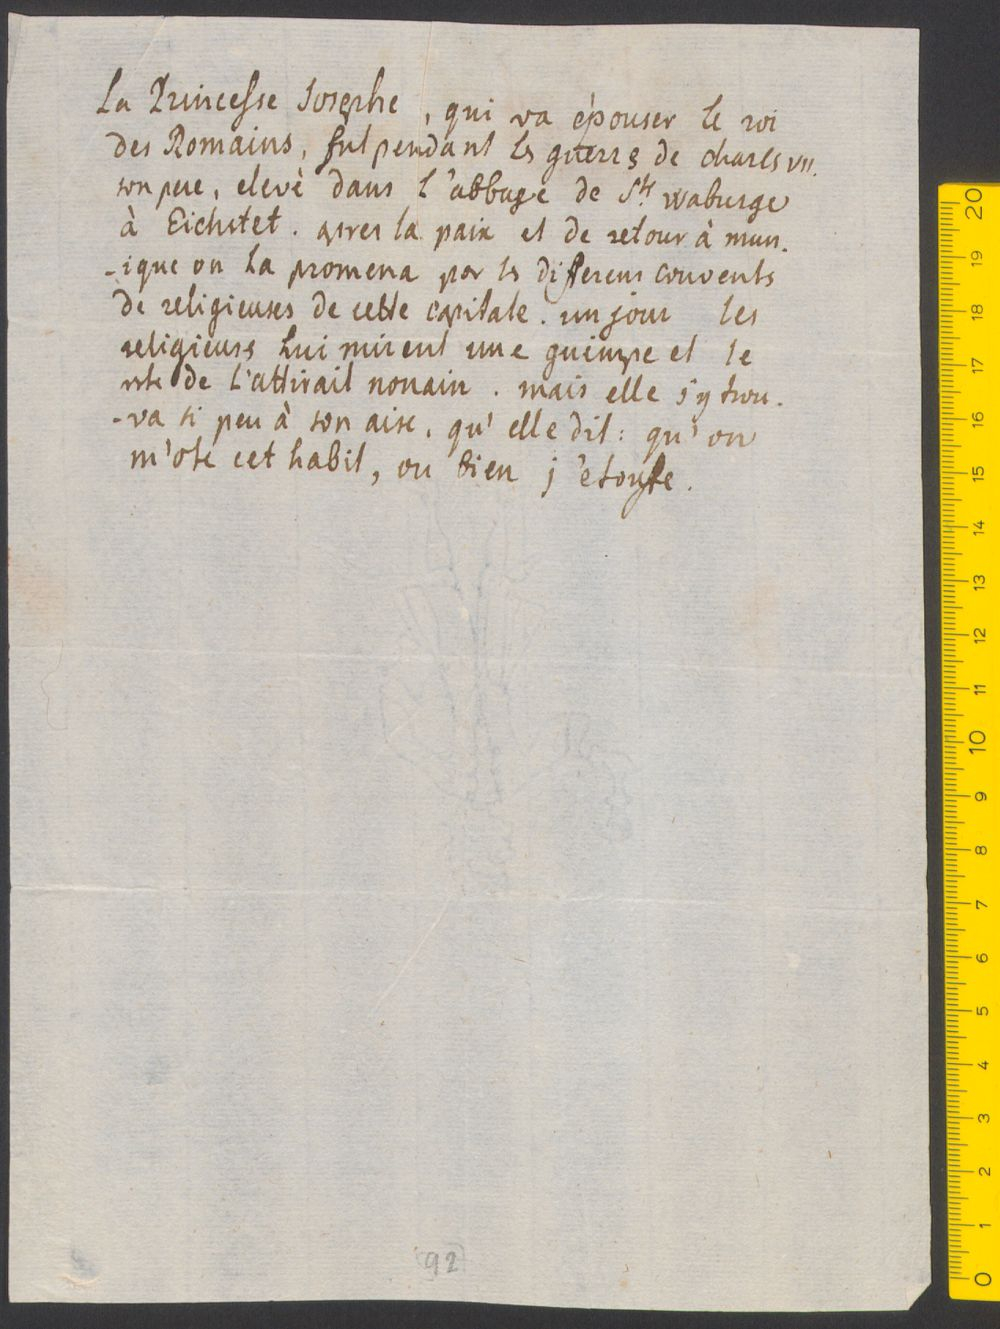 La Princesse Josephe, qui va épouser le roi
des Romains, fut pendant les guerres de charles VII.
son pere, elevé dans l'abbaye de Ste Waburge
à Eichstet. apres la paix et de retour à mun-
-ique on la promena par les differens couvents
de religieuses de cette capitale. un jour les
religieuses lui mirent une guimpe et le
reste de l'attirail nonain. mais elle s'y trou-
-va si peu à son aise, qu'elle dit: qu'on
m'ote cet habit, ou bien j'etouffe.
92
20
19
18
17
16
15
14
13
12
11
10
9
8
7
6
5
4
3
2
1
0